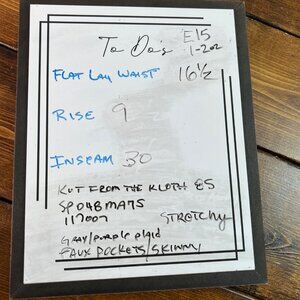 To Do's E15
1-2oz
FLAT LAY WAIST 16½
RISE 9
INSEAM 30
KUT FROM THE KLOTH ES
SP048MA7S
117007 STRETCHY
GRAY/PURPLE PLAID
FAUX POCKETS/SKINNY